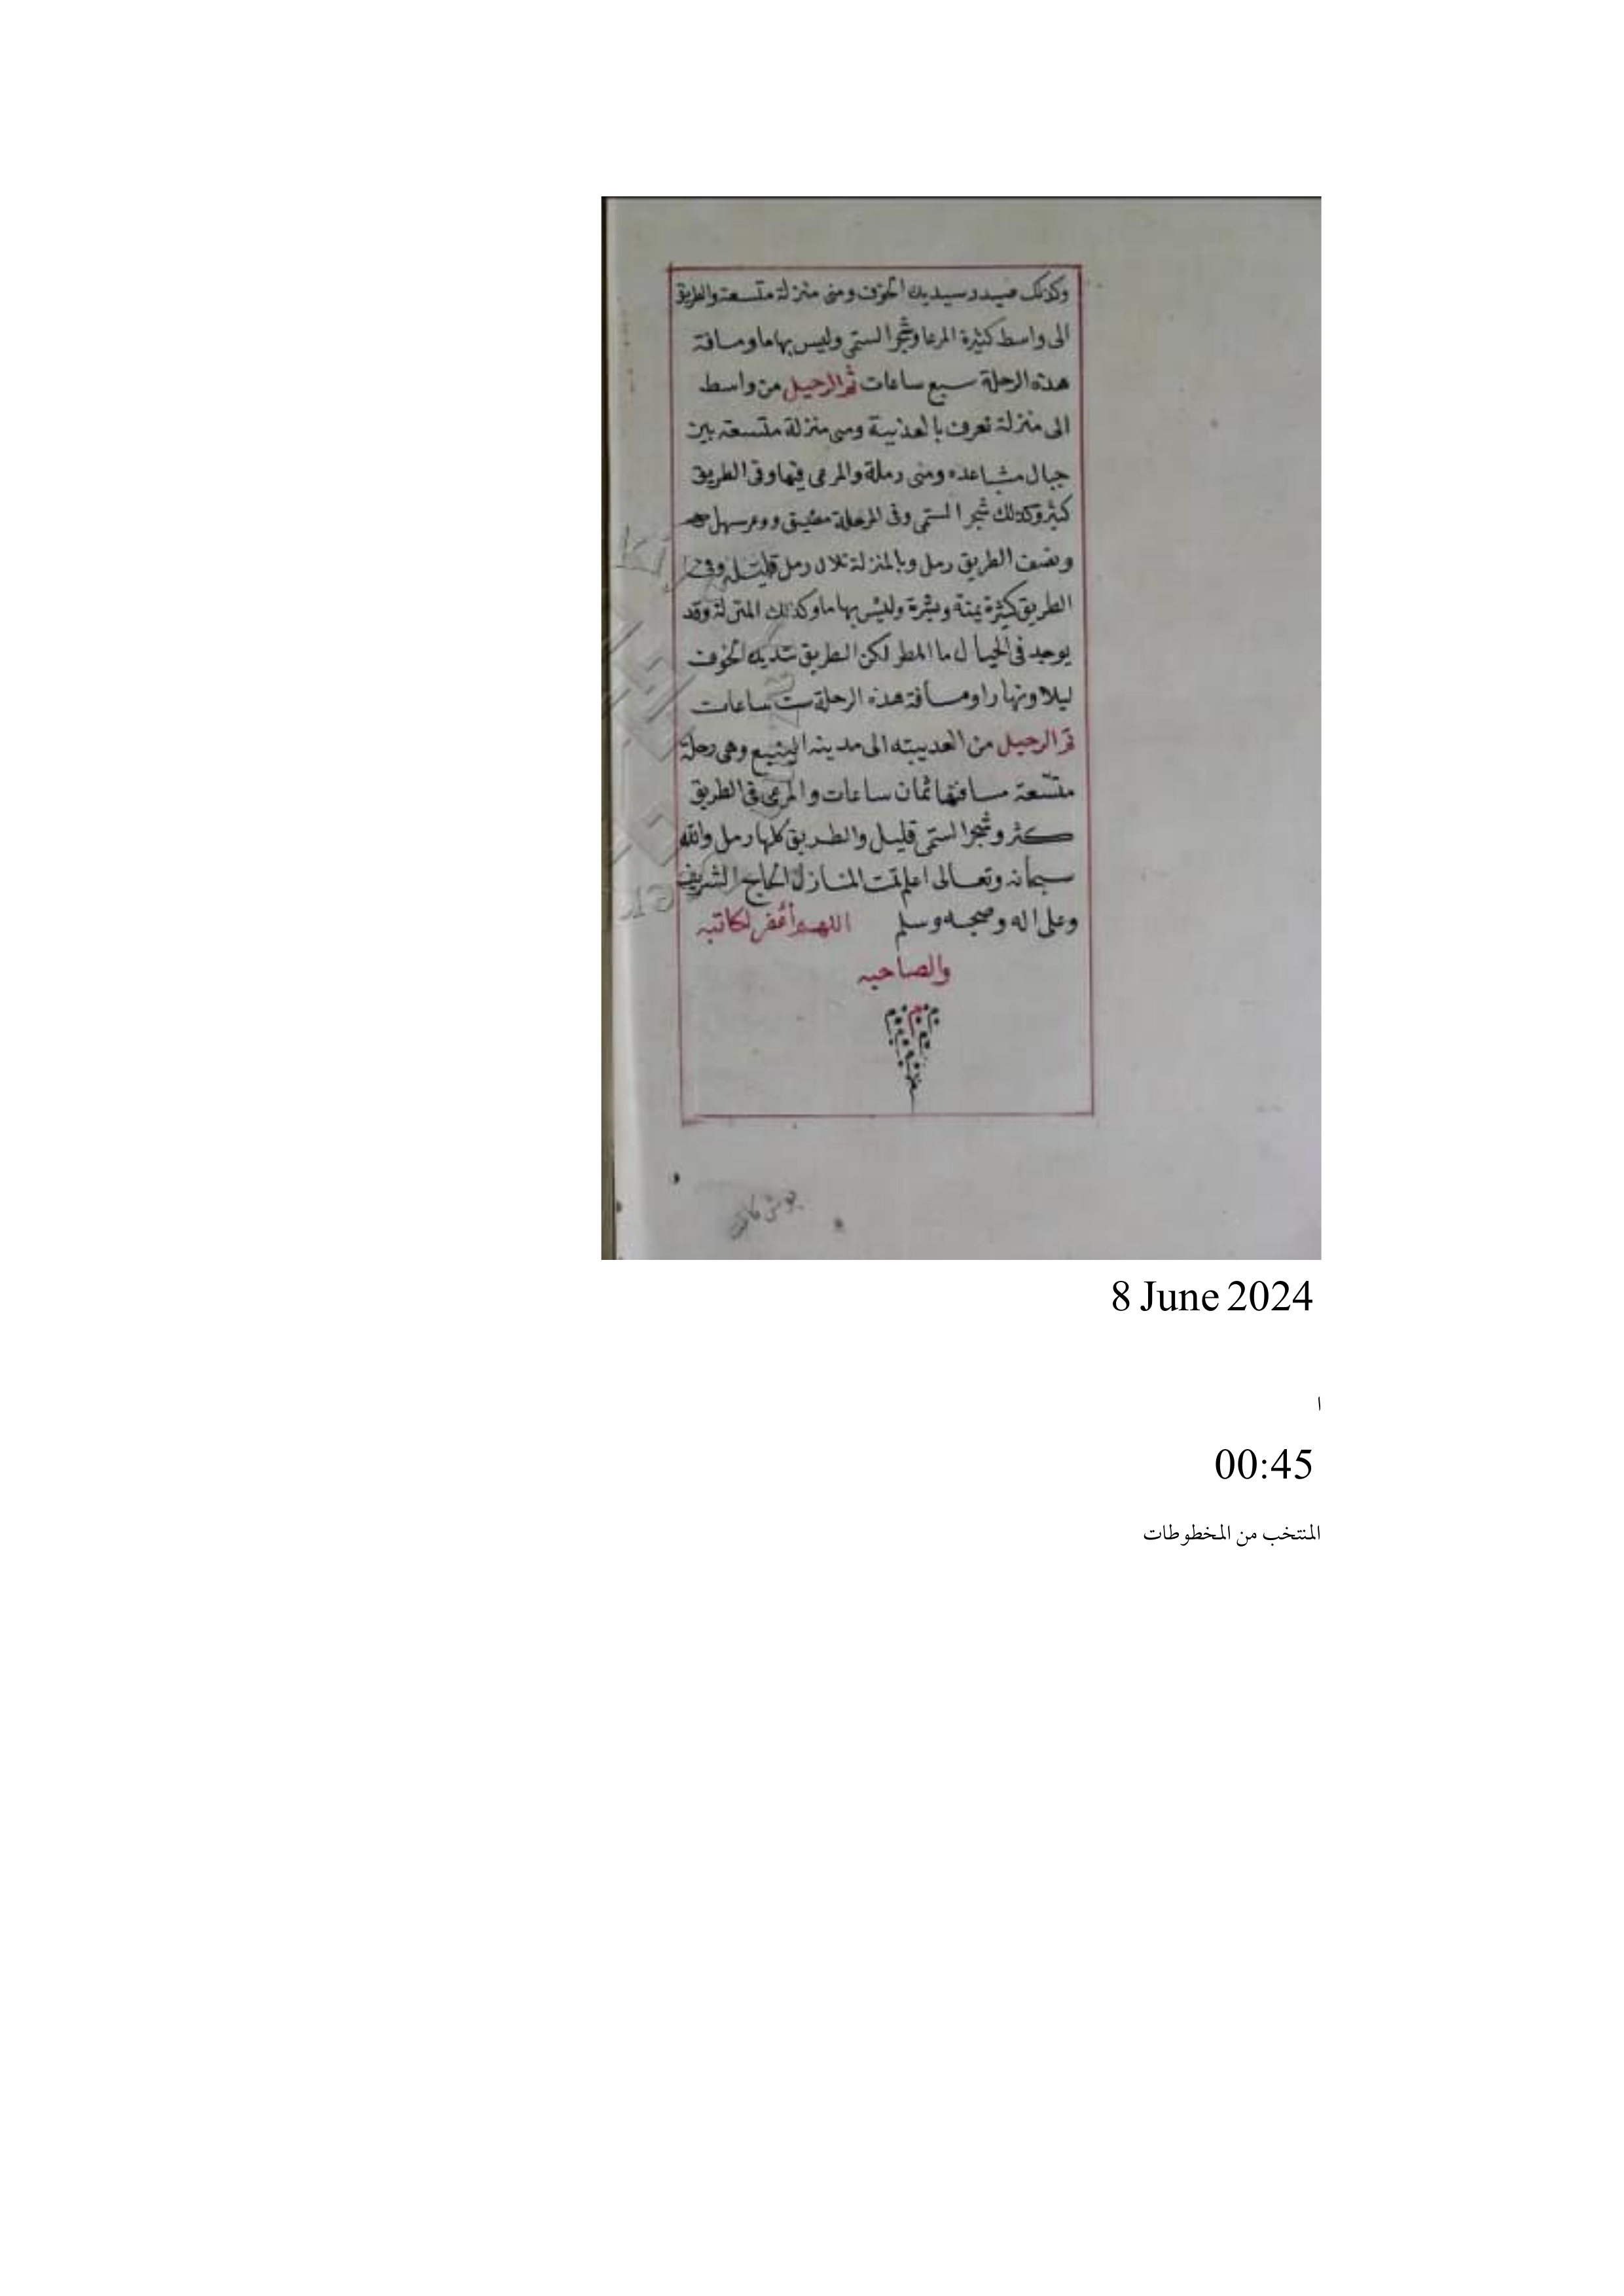 وكذلك صيدد سيديك الخوف ومى منزلة متسعة والطريق
الى واسط كثيرة المرعا وشجر الستمى وليس بها ما ومسافة
هذه الرحلة سبع ساعات ثم الرحيل من واسط
الى منزلة تعرف بالعذيبة ومى منزلة متسعه بين
جبال مشاعده ومنى رملة والمرعى فيها وفى الطريق
كثير وكذلك شجر الستمى وفى المرحلة مضيق ووعر سهل
ونصف الطريق رمل وبالمنزلة تلال رمل قليله وفى
الطريق كثيرة يمنة ويشرة وليس بها ما وكذلك المنزلة وقد
يوجد فى الجبال ما المطر لكن الطريق شديك الخوف
ليلا ونهارا ومسافة هذه الرحلة ست ساعات
ثم الرحيل من العديبيه الى مدينه الينبع وهى رحلة
متسعة مسافتها ثمان ساعات والمرعى فى الطريق
كثر وشجر الستمى قليل والطريق كلها رمل والله
سبحانه وتعالى اعلم تمت المنازل الحاج الشريف
وعلى اله وصحبه وسلم اللهم أغفر لكاتبه
والصاحبه
8 June 2024
ا
00:45
المنتخب من المخطوطات